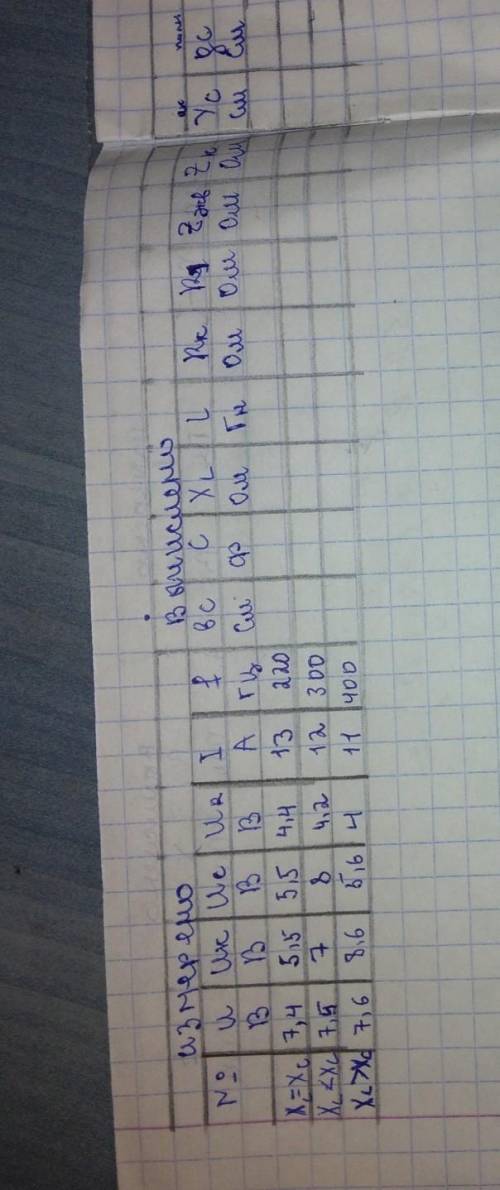 Измерено Вычислено
№ U Uк Uс Uд I f вс С XL L Rк Rд Zэкв Zк Yс gс
В В В В А Гц См Ф Ом Гн Ом Ом Ом Ом См См
XL=Xc 7,4 5,5 5,5 4,4 13 220
XL<Xc 7,5 7 8 4,2 12 300
XL>Xc 7,6 8,6 5,6 4 11 400